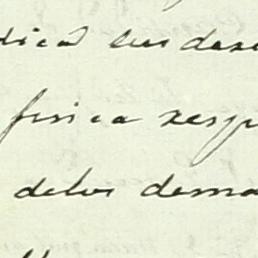 dica sus dese
fisica resp
delos dema